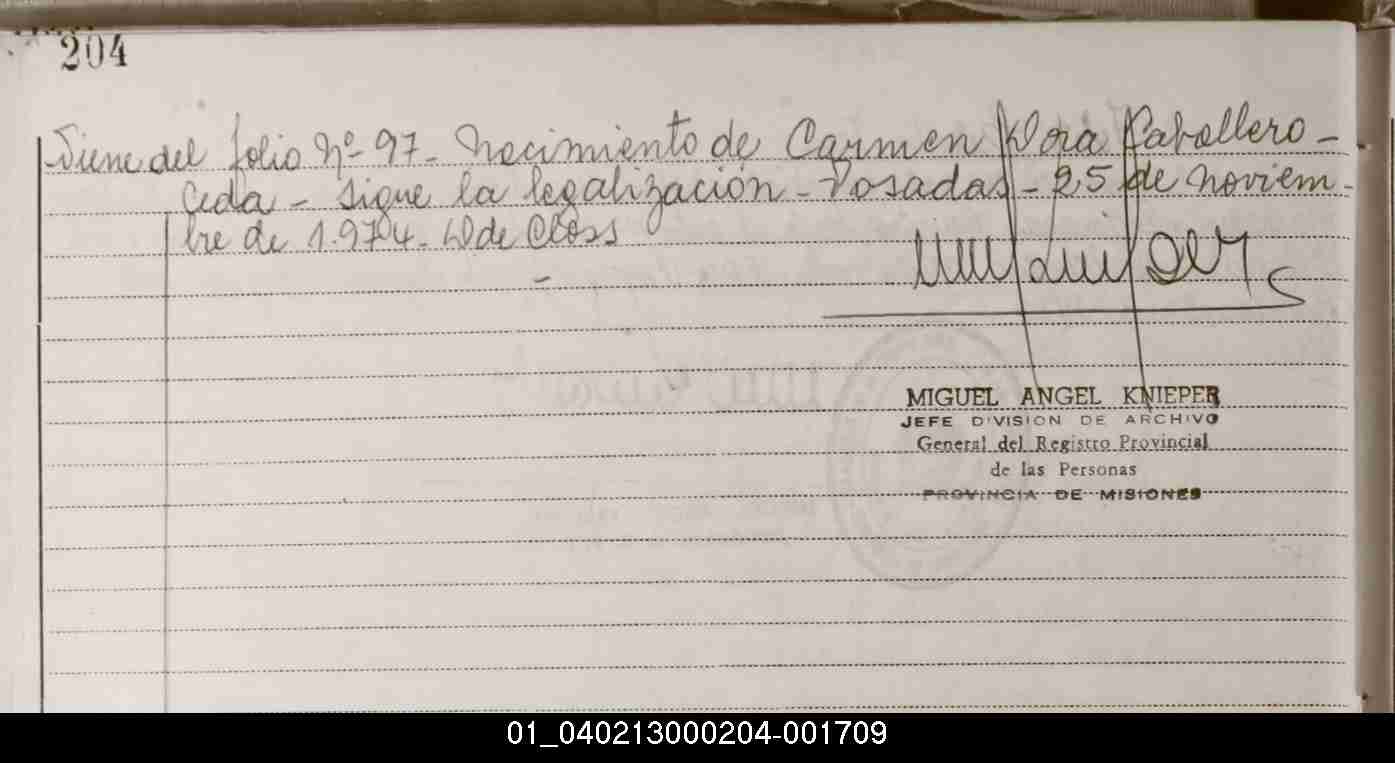 204
Viene del folio Nº 97 - Nacimiento de Carmen Dora Caballero -
Ceda - sigue la legalización - Posadas - 25 de Noviem-
bre de 1.974 - W de Closs
-
MIGUEL ANGEL KNIEPER
JEFE DIVISION DE ARCHIVO
General del Registro Provincial
de las Personas
PROVINCIA DE MISIONES
01_040213000204-001709